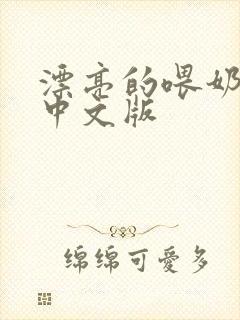 漂亮的喂奶
中文版
绵绵可愛多